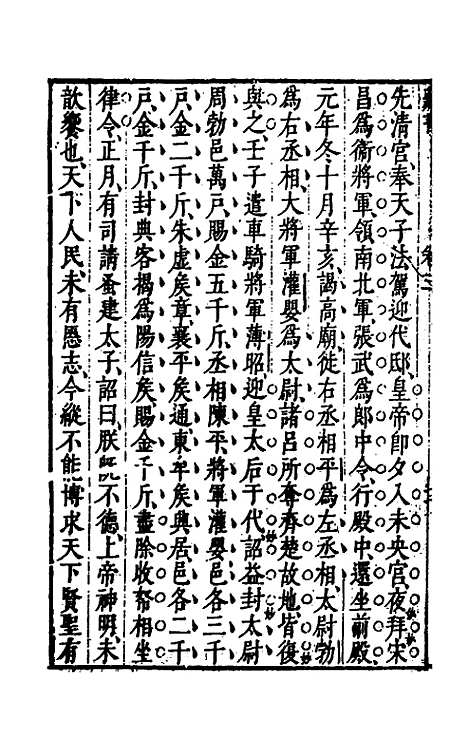 先清宮、奉天子法駕迎代邸、皇帝卽夕入未央宮、夜拜宋
昌爲衞將軍、領南北軍、張武爲郞中令、行殿中、還坐前殿、
元年冬十月辛亥、謁高廟、徙右丞相平爲左丞相、太尉勃
爲右丞相、大將軍灌嬰爲太尉、諸呂所奪齊楚故地、皆復
與之、壬子、遣車騎將軍薄昭迎皇太后于代、詔益封太尉
周勃邑萬戶、賜金五千斤、丞相陳平、將軍灌嬰邑各三千
戶、金二千斤、朱虛矦章、襄平矦通、東牟矦興居、邑各二千
戶、金千斤、封典客揭爲陽信矦、賜金千斤、盡除收帑相坐
律令、正月、有司請蚤建太子、詔曰、朕旣不德、上帝神明、未
歆饗也、天下人民、未有愜志、今縱不能博求天下賢聖有